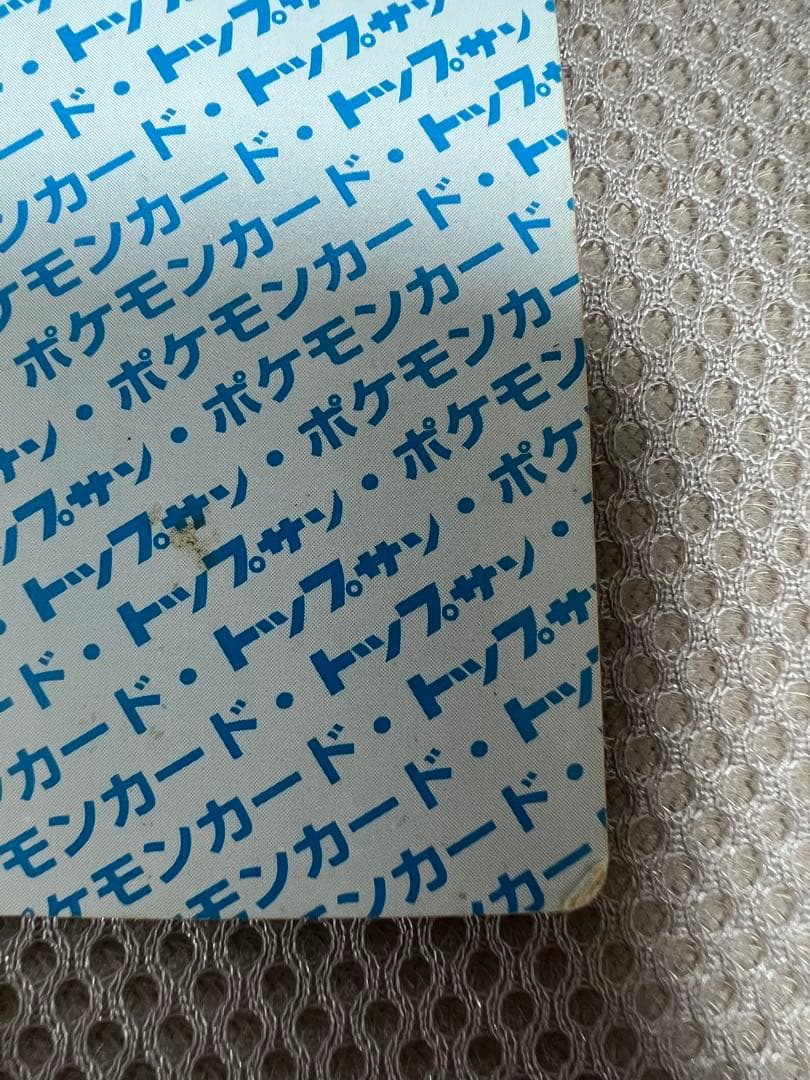 ・トップ
ード・トップサ
ンカード・トップサン
ケモンカード・トップサン・
ポケモンカード・トップサ
サン・ポケモンカード・トッ
ップサン・ポケモンカード・
・トップサン・ポケモンカー
ード・トップサン・ポケモン
ンカード・トップサン・ポケ
モンカード・トップサン・
ケモンカード・トップサ
モンカード・トッ
ンカード・
カー